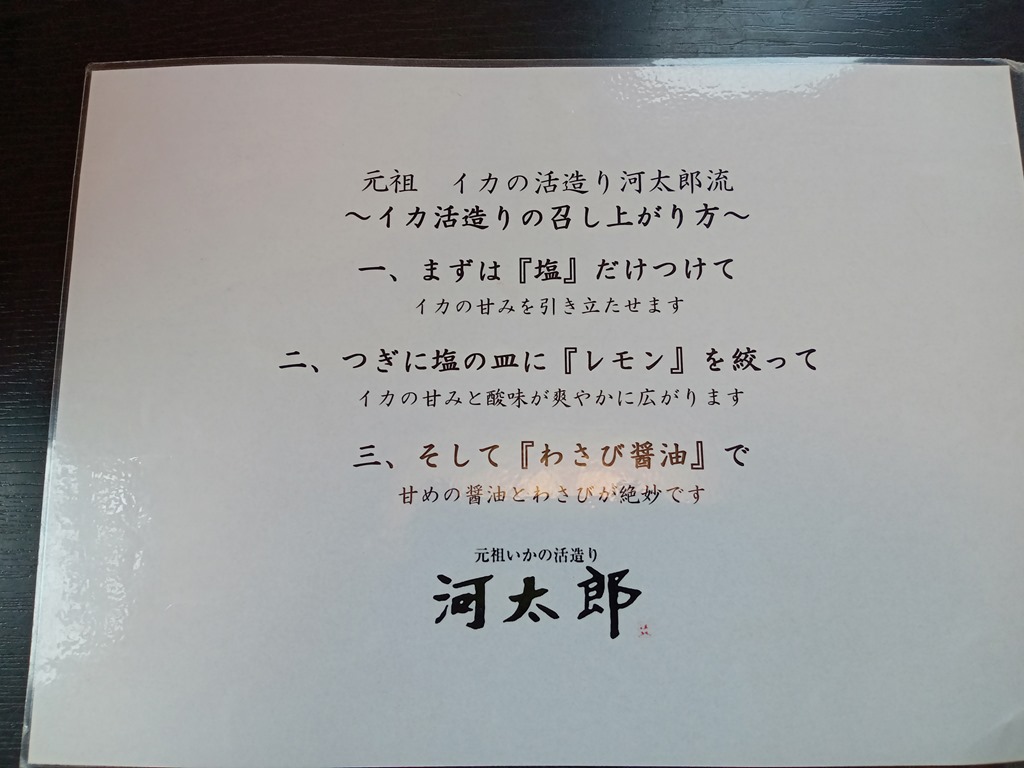 元祖　イカの活造り河太郎流
～イカ活造りの召し上がり方～
一、まずは『塩』だけつけて
イカの甘みを引き立たせます
二、つぎに塩の皿に『レモン』を絞って
イカの甘みと酸味が爽やかに広がります
三、そして『わさび醤油』で
甘めの醤油とわさびが絶妙です
元祖いかの活造り
河太郎